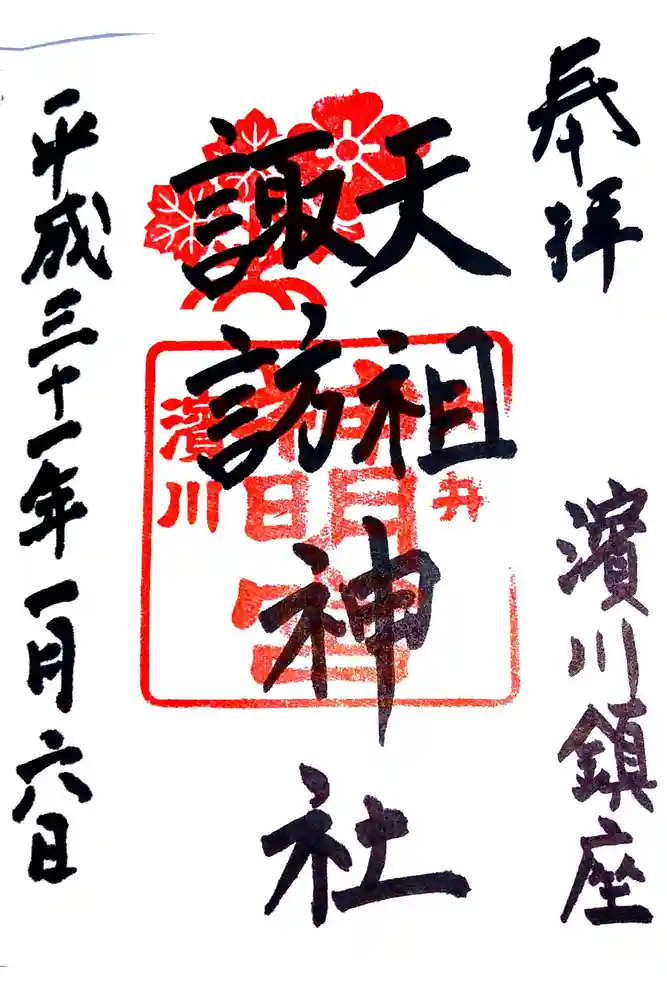 奉拝
濱川鎮座
天祖
諏訪
神社
平成三十一年一月六日
神明宮
濱川